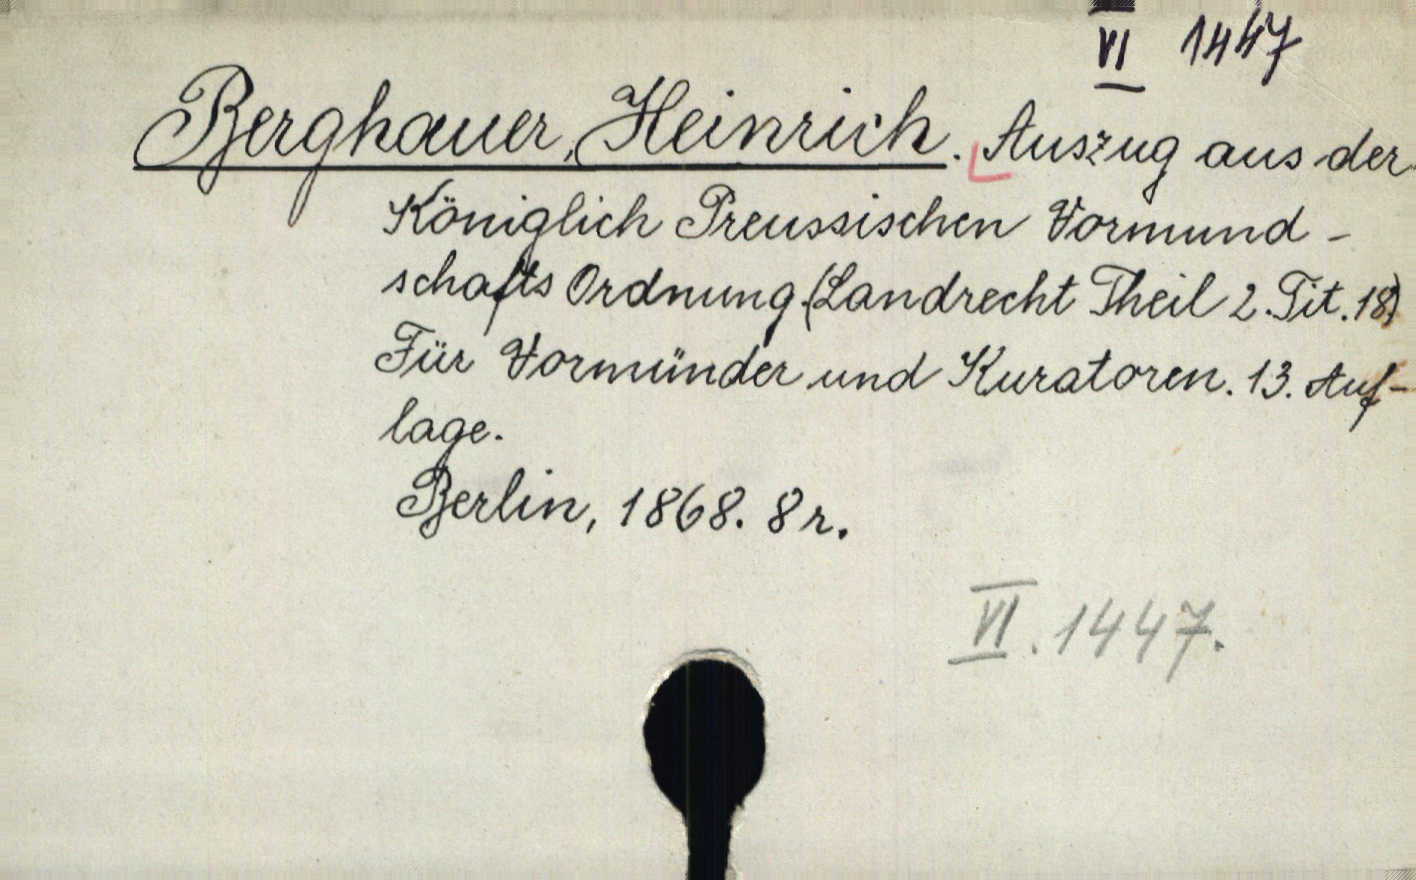 VI 1447
Berghauer, Heinrich. Auszug aus der
Königlich Preussischen Vormund-
schafts Ordnung. (Landrecht Theil 2. Tit. 18)
Für Vormünder und Kuratoren. 13. Auf-
lage.
Berlin, 1868. 8r.
VI. 1447.